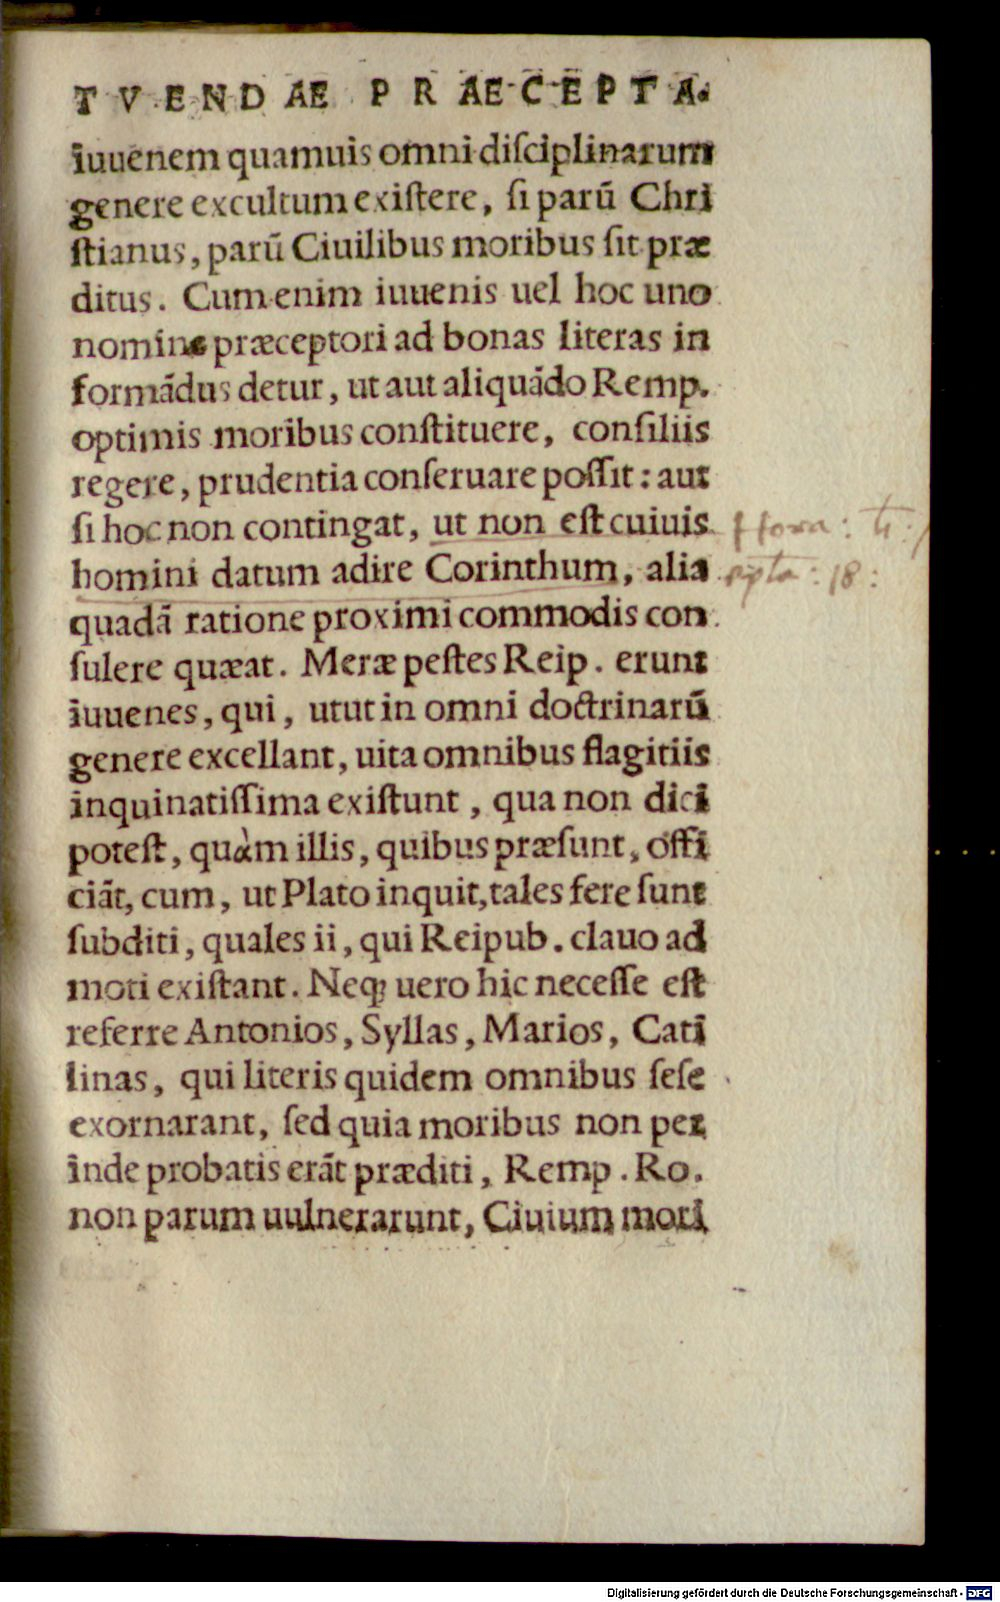 TVENDAE PRAECEPTA.
iuuenem quamuis omni diſciplinarum
genere excultum exiſtere, ſi parū Chri
ſtianus, parū Ciuilibus moribus ſit præ
ditus. Cum enim iuuenis uel hoc uno
nomine præceptori ad bonas literas in
formādus detur, ut aut aliquādo Remp.
optimis moribus conſtituere, conſiliis
regere, prudentia conſeruare poſſit: aut
ſi hoc non contingat, ut non eſt cuiuis
homini datum adire Corinthum, alia
quadā ratione proximi commodis con
ſulere quæat. Meræ peſtes Reip. erunt
iuuenes, qui, utut in omni doctrinarū
genere excellant, uita omnibus flagitiis
inquinatiſſima exiſtunt, qua non dici
poteſt, quàm illis, quibus præſunt, offi
ciāt, cum, ut Plato inquit, tales fere ſunt
ſubditi, quales ii, qui Reipub. clauo ad
moti exiſtant. Neqꝫ uero hic neceſſe eſt
referre Antonios, Syllas, Marios, Cati
linas, qui literis quidem omnibus ſeſe
exornarant, ſed quia moribus non per
inde probatis erāt præditi, Remp. Ro.
non parum uulnerarunt, Ciuium mori
18:
Digitalisierung gefördert durch die Deutsche Forschungsgemeinschaft - DFG